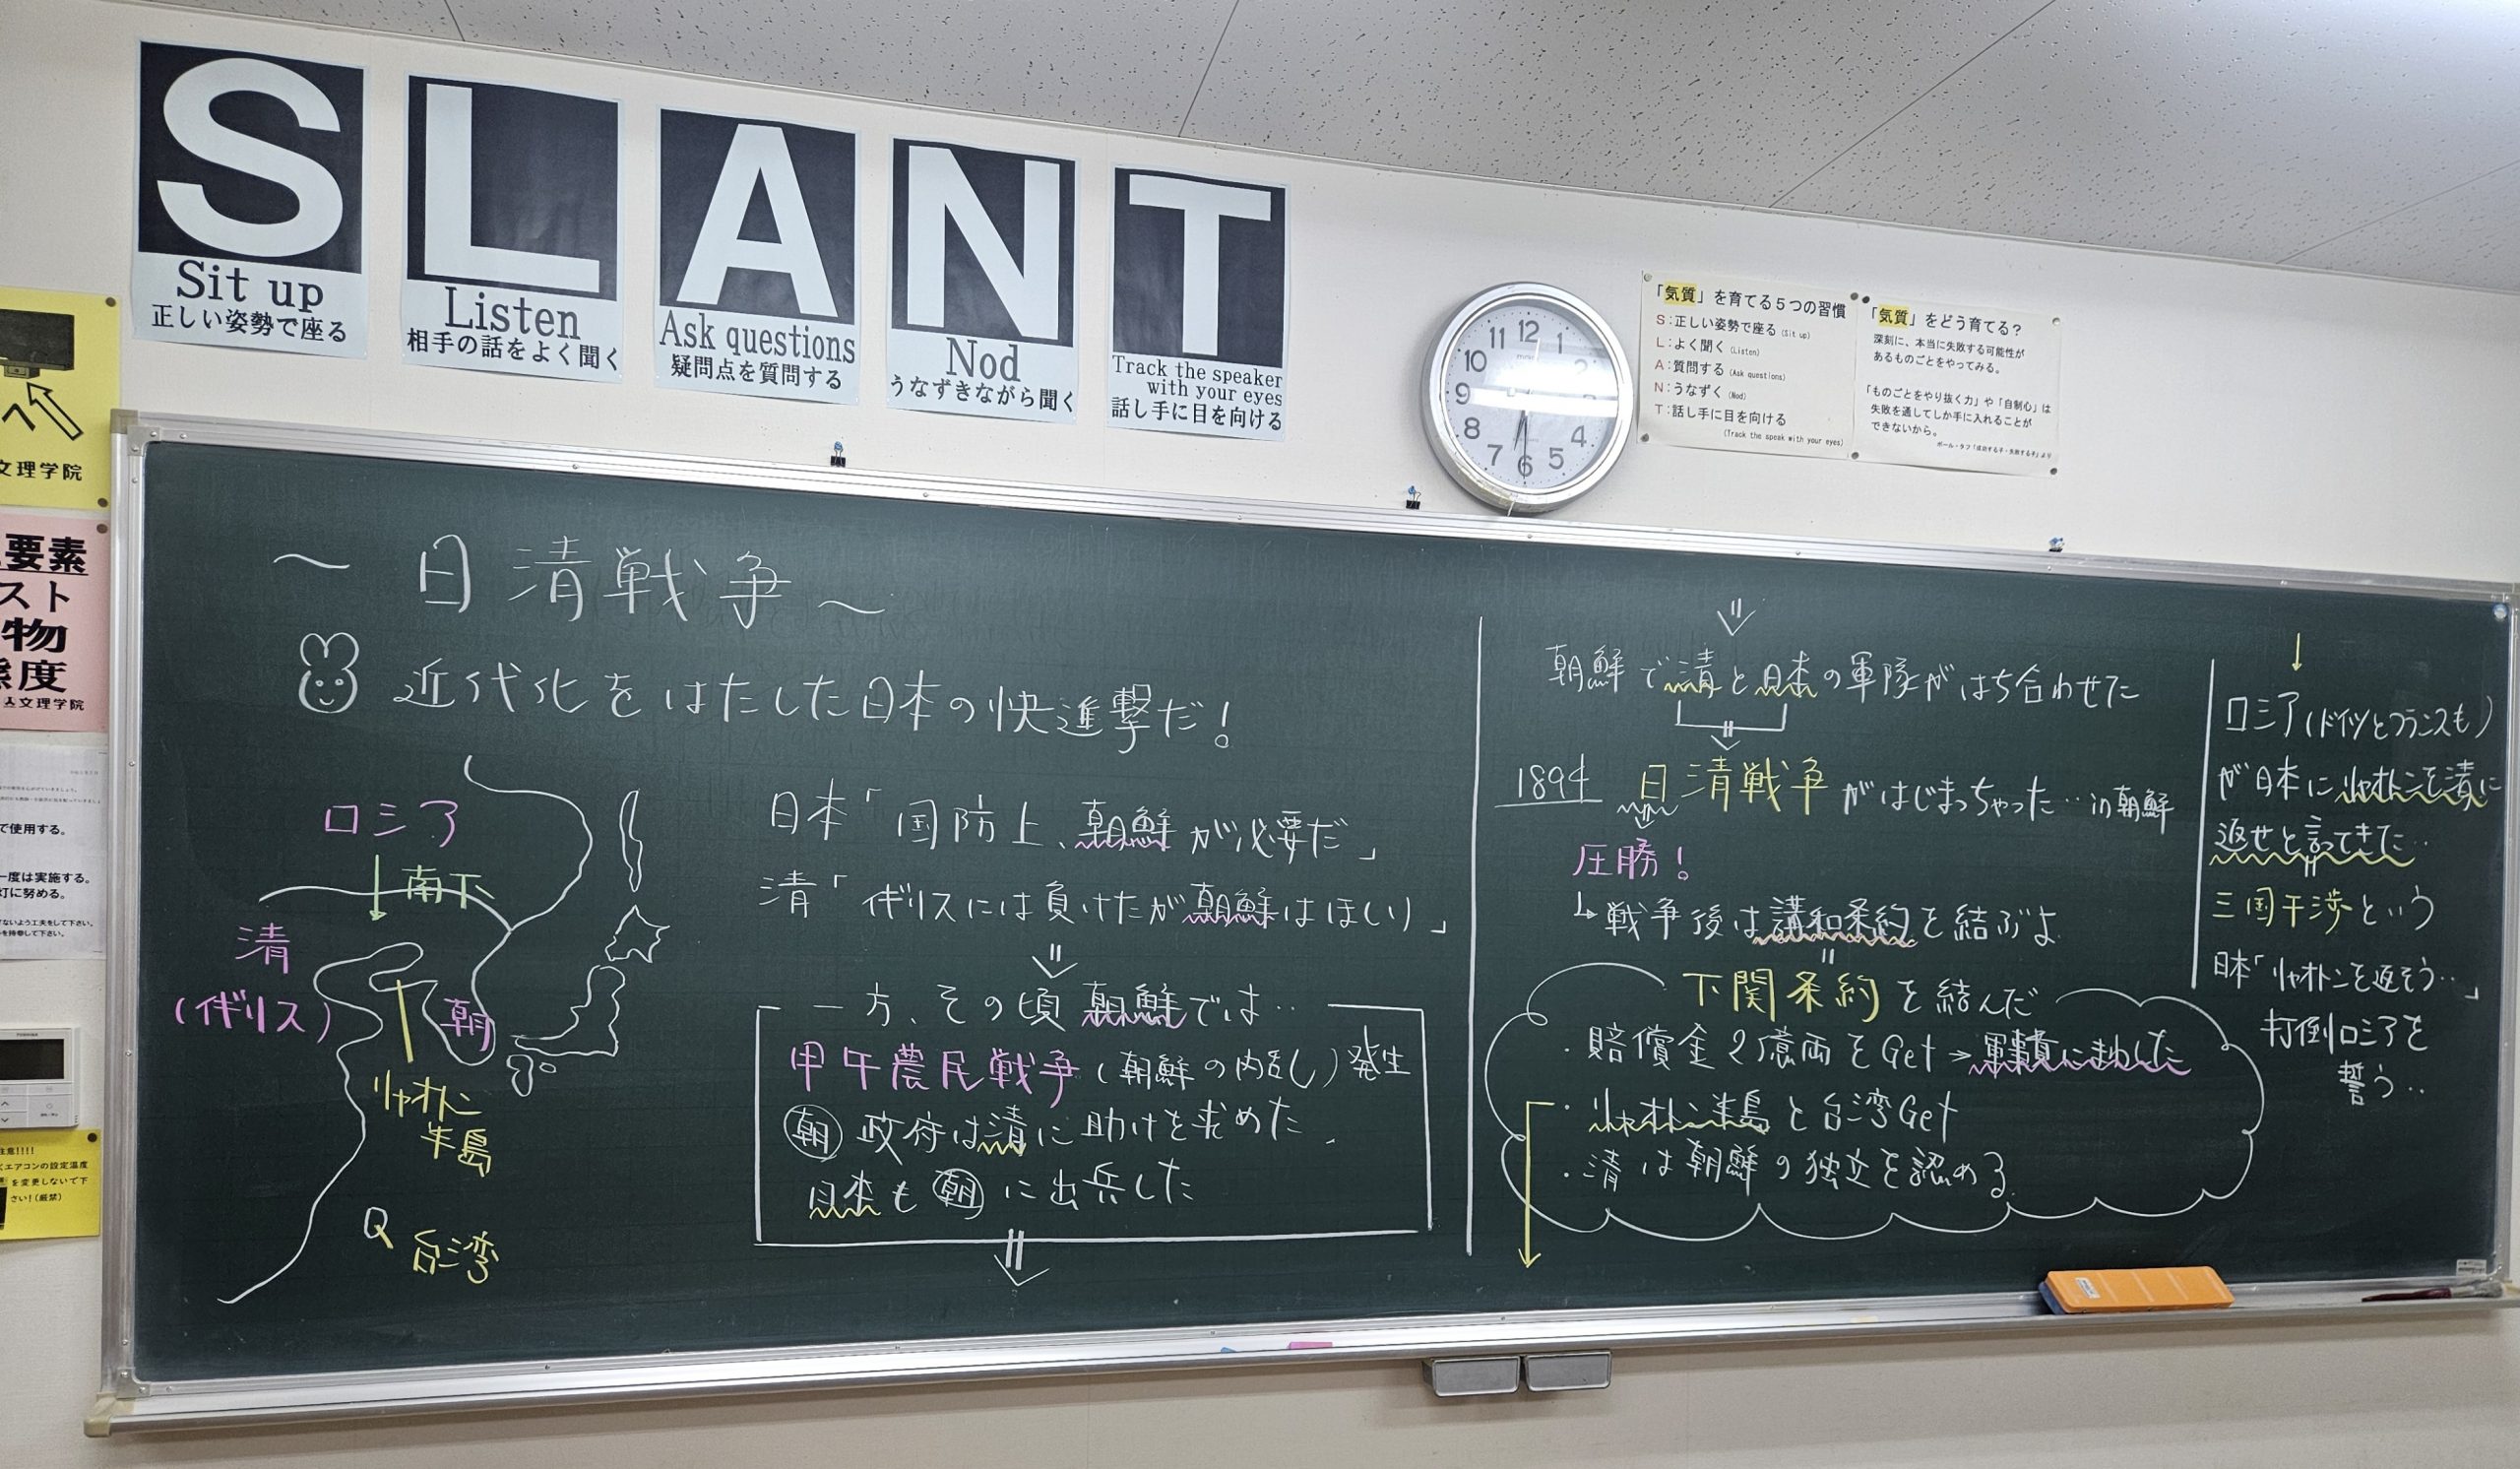 S
Sit up
正しい姿勢で座る
L
Listen
相手の話をよく聞く
A
Ask questions
疑問点を質問する
N
Nod
うなずきながら聞く
T
Track the speaker
with your eyes
話し手に目を向ける
12
1
2
4
5
6
7
8
9
10
11
「気質」を育てる5つの習慣
S:正しい姿勢で座る (Sit up)
L:よく聞く (Listen)
A:質問する (Ask questions)
N:うなずく (Nod)
T:話し手に目を向ける
(Track the speak with your eyes)
「気質」をどう育てる?
深刻に、本当に失敗する可能性が
あるものごとをやってみる。
「ものごとをやり抜く力」や「自制心」は
失敗を通してしか手に入れることが
できないから。
ポール・タフ「成功する子・失敗する子」より
へ
文理学院
要素
スト
物
態度
文理学院
で使用する。
一度は実施する。
灯に努める。
ないよう工夫をして下さい。
を持参して下さい。
注意!!!!
エアコンの設定温度
を変更しないで下
さい!(厳禁)
～日清戦争～
近代化をはたした日本の快進撃だ!
ロシア
南下
清
(イギリス)
朝
リャオトン
半島
台湾
日本「国防上、朝鮮が必要だ」
清「イギリスには負けたが朝鮮はほしい」
一方、その頃朝鮮では‥
甲午農民戦争(朝鮮の内乱)発生
朝 政府は清に助けを求めた、
日本も朝に出兵した
朝鮮で清と日本の軍隊がはち合わせた
1894 日清戦争がはじまっちゃった‥in朝鮮
圧勝!
↳戦争後は講和条約を結ぶよ
下関条約を結んだ
・賠償金2億両をGet→軍事費にまわした
・リャオトン半島と台湾Get
・清は朝鮮の独立を認める
ロシア(ドイツとフランスも)
が日本にリャオトンを清に
返せと言ってきた‥
三国干渉という
日本「リャオトンを返そう‥」
打倒ロシアを
誓う‥